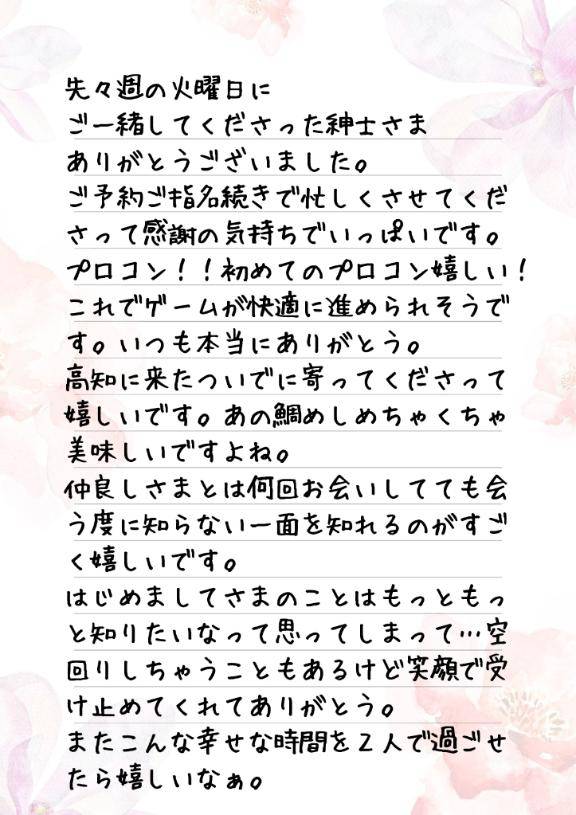 先々週の火曜日に
ご一緒してくださった紳士さま
ありがとうございました。
ご予約ご指名続きで忙しくさせてくだ
さって感謝の気持ちでいっぱいです。
プロコン！！初めてのプロコン嬉しい！
これでゲームが快適に進められそうで
す。いつも本当にありがとう。
高知に来たついでに寄ってくださって
嬉しいです。あの鯛めしめちゃくちゃ
美味しいですよね。
仲良しさまとは何回お会いしてても会
う度に知らない一面を知れるのがすご
く嬉しいです。
はじめましてさまのことはもっともっ
と知りたいなって思ってしまって…空
回りしちゃうこともあるけど笑顔で受
け止めてくれてありがとう。
またこんな幸せな時間を２人で過ごせ
たら嬉しいなぁ。